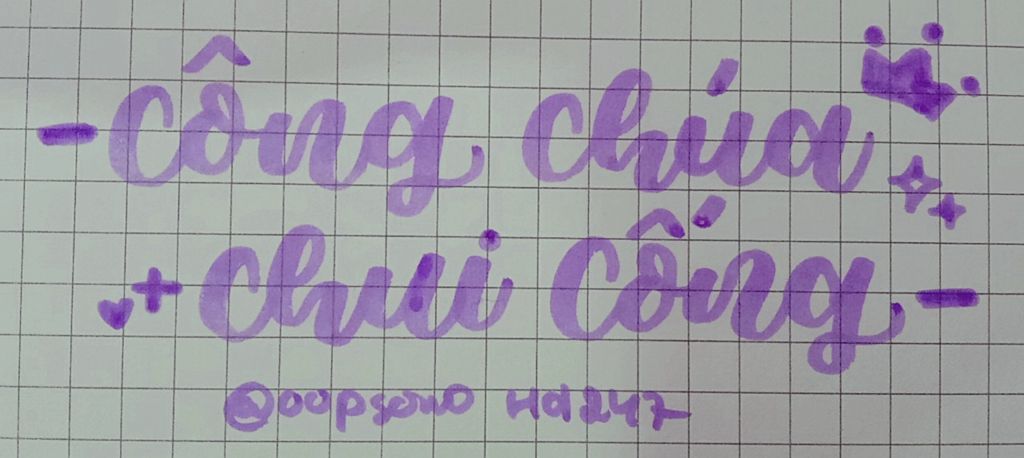 - Công chúa
chui cống -
@oopsono Hd247